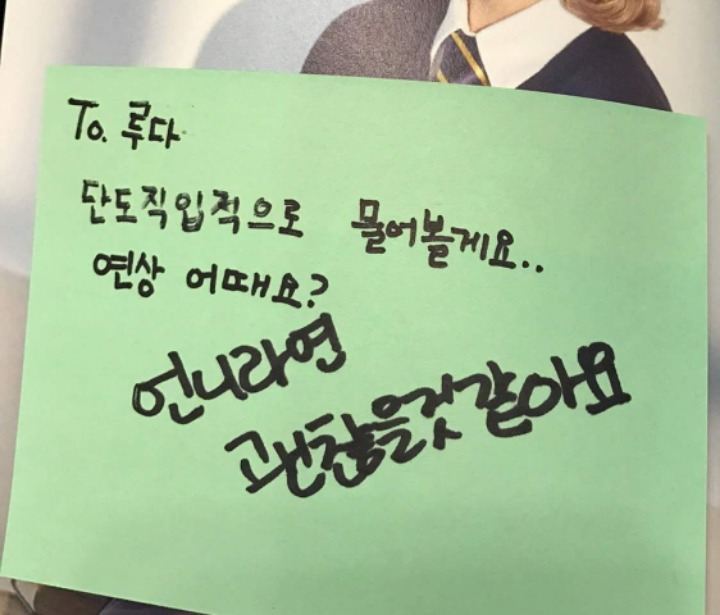 To. 루다
단도직입적으로 물어볼게요..
연상 어때요?
언니라면
괜찮을것같아요